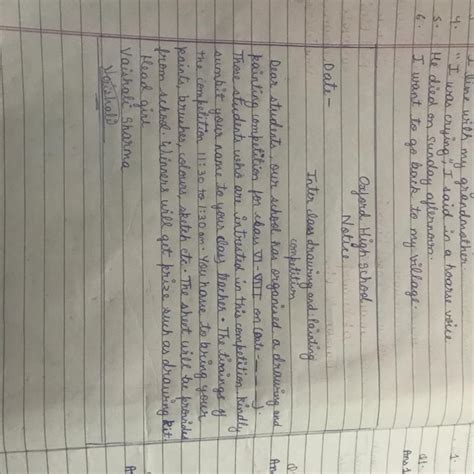 I live with my grandmother
4. "I was crying," I said in a hoarse voice
5. He died on sunday afternoon.
6. I want to go back to my village.
Oxford High School
Notice
Date-
Inter class drawing and painting
competition
Dear students, our school has organised a drawing and
painting competition for class VI - VIII on (date - _ _ _).
Those students who are intrested in this competition kindly
sumbit your name to your class teacher. The timings of
the competition 11:30 to 1:30 on. You have to bring your
paints, brushes, colours, sketch etc. The sheet will be provided
from school. Winners will get prize such as drawing kit
Head girl
Vaishali Sharma
Vaishali
1.
Q1.
Ans 1
An